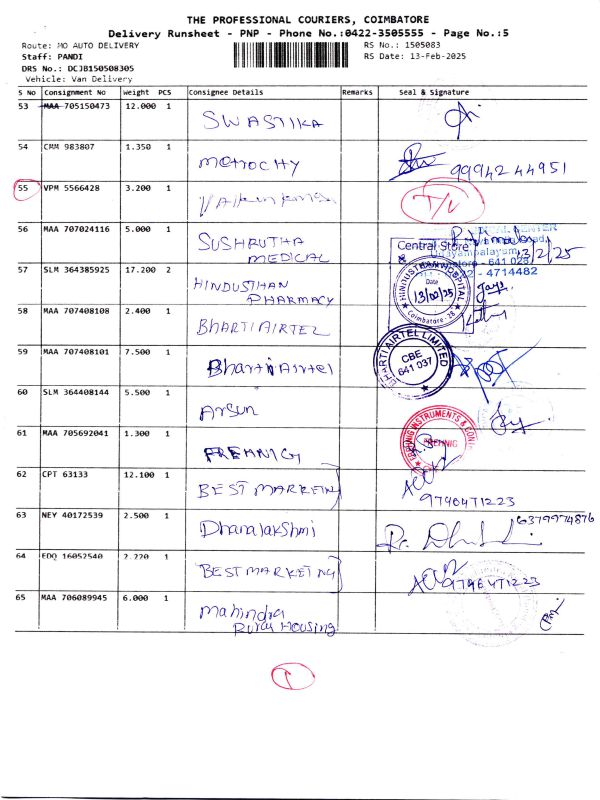 THE PROFESSIONAL COURIERS, COIMBATORE
Delivery Runsheet - PNP - Phone No.:0422-3505555 - Page No.:5
Route: MO AUTO DELIVERY RS No.: 1505083
Staff: PANDI RS Date: 13-Feb-2025
DRS No.: DCJB150508305
Vehicle: Van Delivery
S No Consignment No Weight PCS Consignee Details Remarks Seal & Signature
53 MAA 705150473 12.000 1 SWASTIKA
54 CRM 983807 1.350 1 99942 44951
55 VPM 5566428 3.200 1
56 MAA 707024116 5.000 1 SUSHRUTHA MEDICAL 13/2/25
Central Store
4714482
57 SLM 364385925 17.200 2 HINDUSTHAN PHARMACY
HINDUSTHAN HOSPITAL
Date
13/02/25
Coimbatore - 28
58 MAA 707408108 2.400 1 BHARTI AIRTEL
59 MAA 707408101 7.500 1 Bharti Airtel
BHARTI AIRTEL LIMITED
CBE
641 037
60 SLM 364408144 5.500 1 Arsun
61 MAA 705692041 1.300 1 PREHNIG
PREHNIG INSTRUMENTS &
PREHNIG
62 CPT 63133 12.100 1 BEST MARKETING
9790471223
63 NEY 40172539 2.500 1 Dhanalakshmi 6379974876
64 EDQ 16052540 2.220 1 BEST MARKETING
9790471223
65 MAA 706089945 6.000 1 Mahindra
Rural Housing